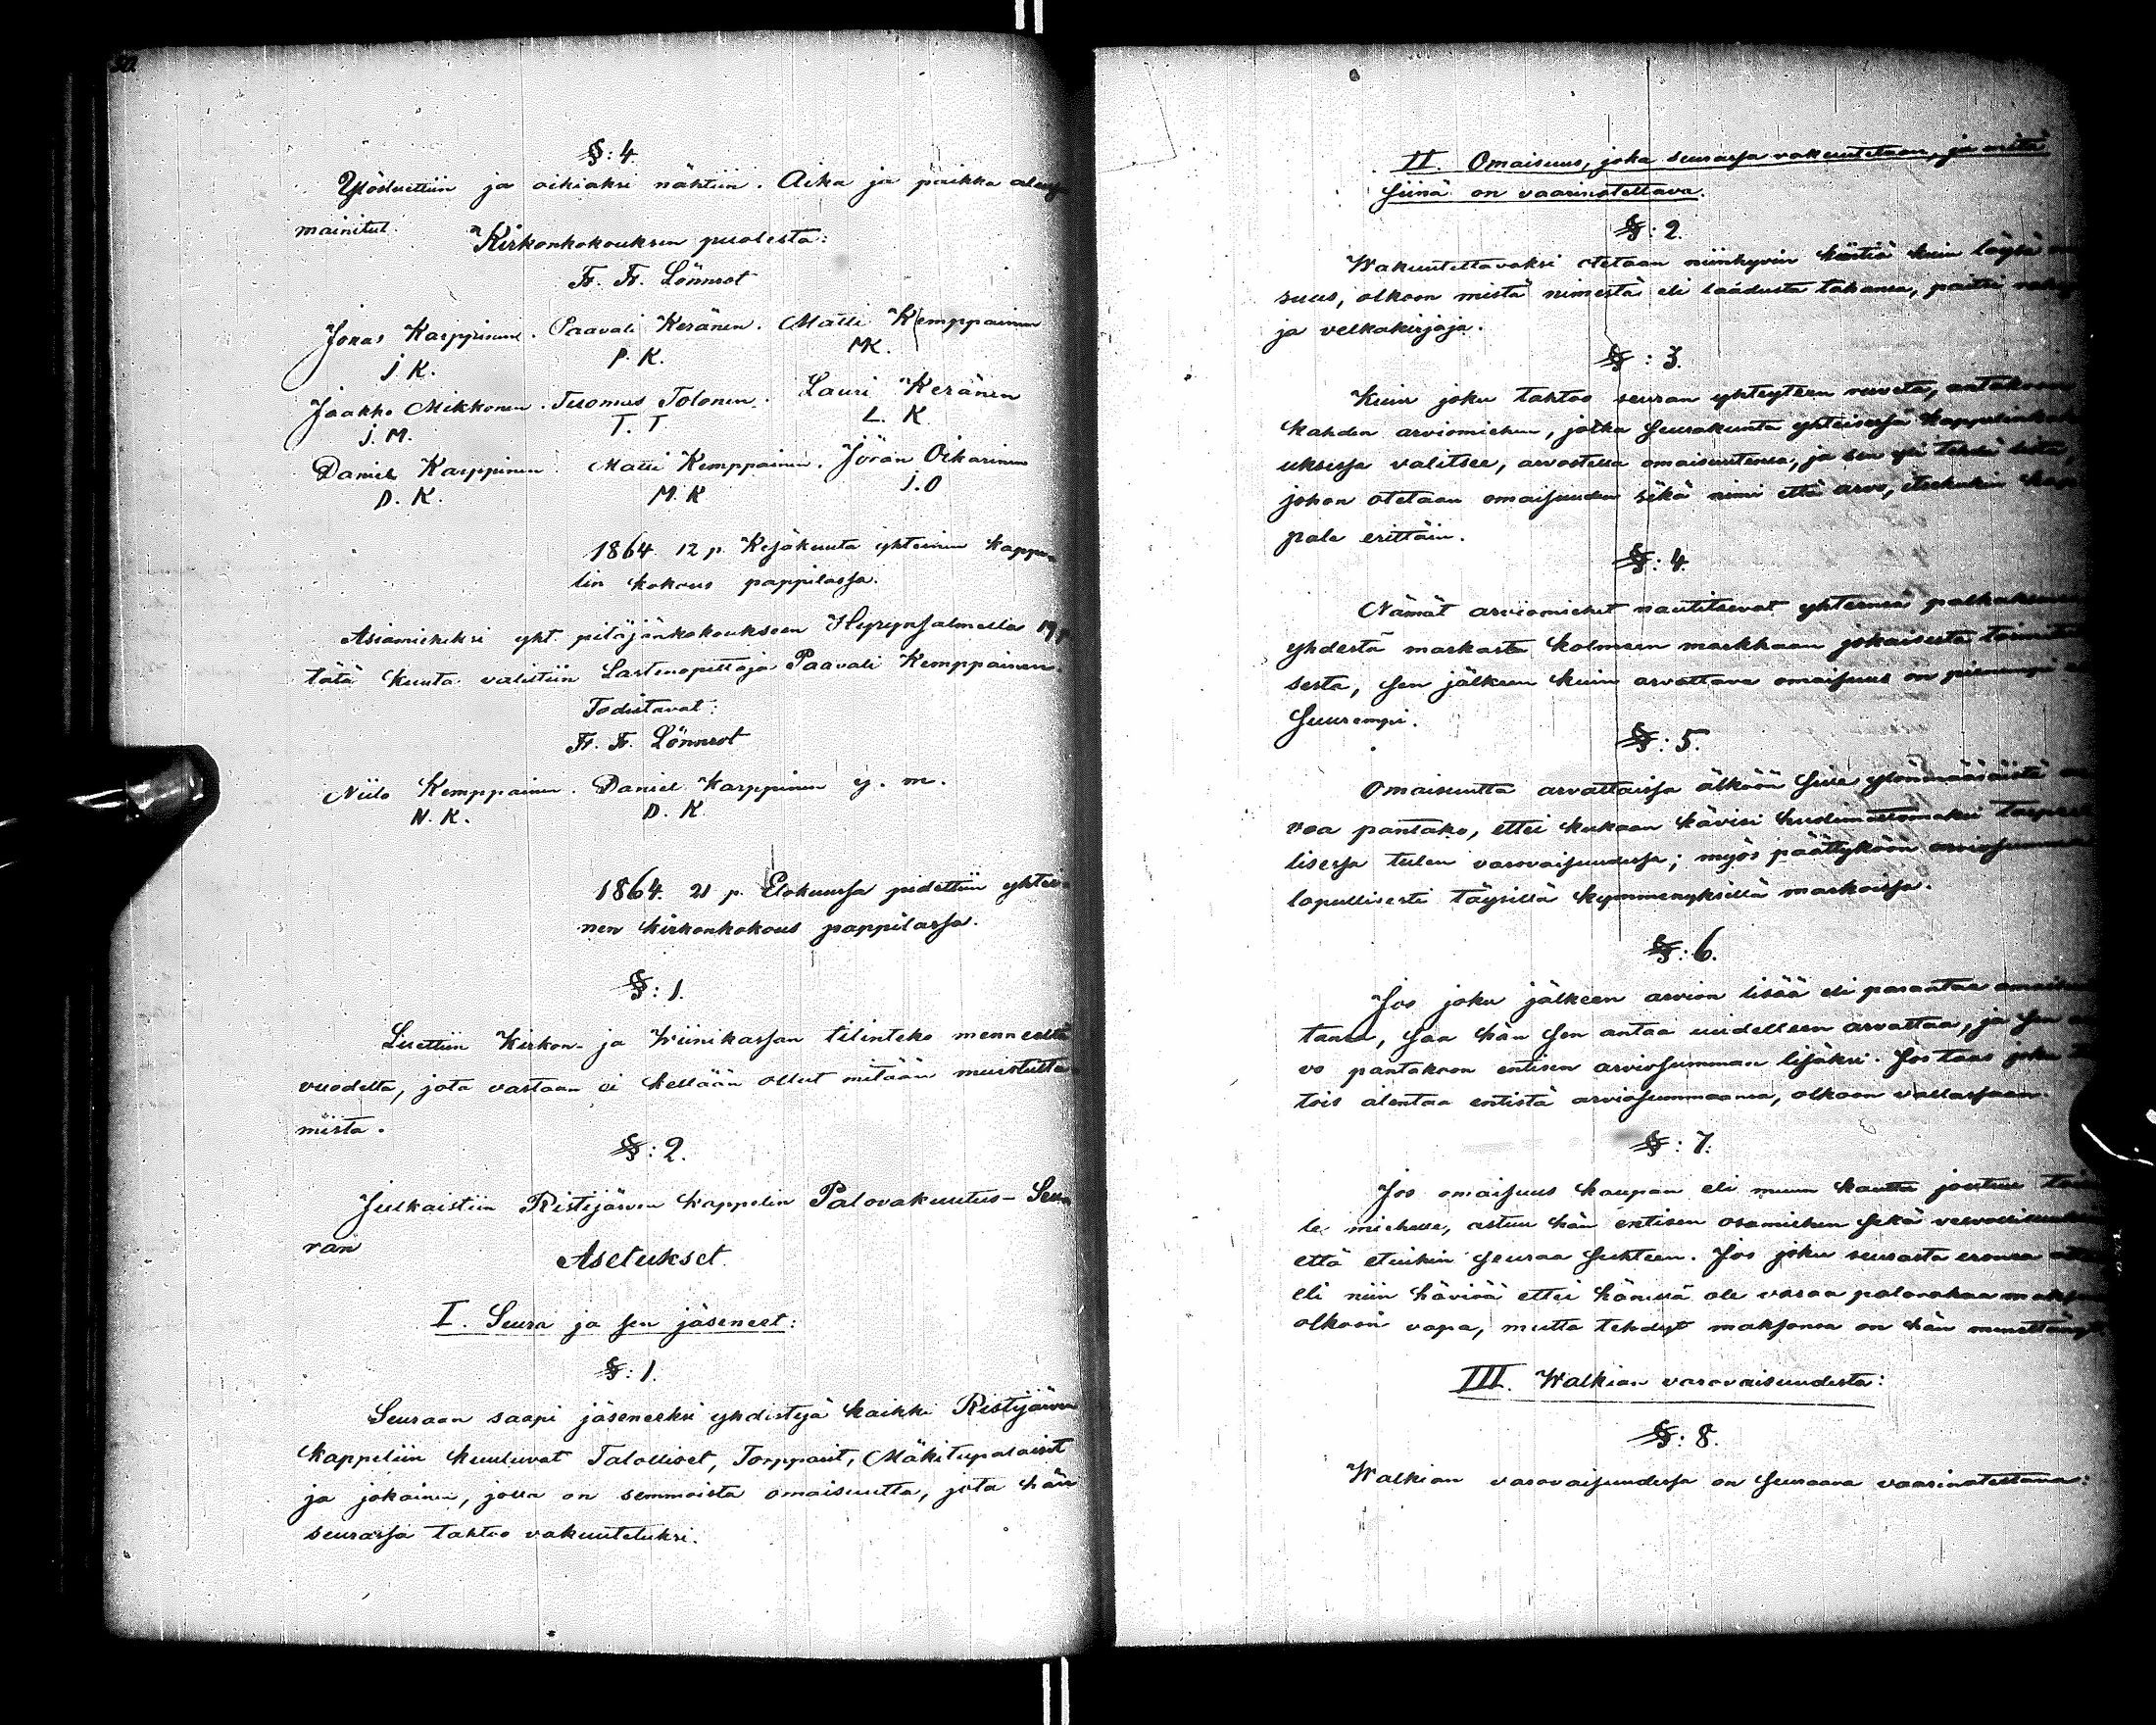 §: 4.
Ylösluettiin ja oikiaksi nähtiin. Aika ja paikka
mainitut.
Kirkonkokouksen puolesta:
Fr. Fr. Lönnrot
Jonas Karppinen. Paavali Keränen. Matti Kemppainen
J. K. P. K. M K.
Jaakko Mikkonen. Tuomas Tolonen. Lauri Keränen
J. M. T. T L. K.
Daniel Karppinen. Matti Kemppainen. Jöran Oikarinen
D. K. M. K J. O
1864 12 p. Kesäkuuta yhteinen kappe-
lin kokous pappilassa.
Asiamieheksi yht. pitäjänkokoukseen Hyrynsalmella 19 p
tätä kuuta valittiin Lastenopettaja Paavali Kemppainen.
Todistavat:
Fr. Fr. Lönnrot
Niilo Kemppainen. Daniel Karppinen y. m.
N. K. D. K.
1864. 21 p. Elokuussa pidettiin yhtei-
nen kirkonkokous pappilassa.
§: 1.
Luettiin Kirkon- ja Wiinikassan tilinteko menneeltä
vuodelta, jota vastaan ei kellään ollut mitään muistutta-
mista.
§: 2.
Julkaistiin Ristijärven kappelin Palovakuutus-Seu-
ran
Asetukset.
I. Seura ja sen jäsenet:
§: 1.
Seuraan saapi jäseneksi yhdistyä kaikki Ristijärven
kappeliin kuuluvat Talolliset, Torpparit, Mäkitupalaiset
ja jokainen, jolla on semmoista omaisuutta, jota hän
seurassa tahtoo vakuutetuksi.
II. Omaisuus, joka seurassa vakuutetaan, ja mitä
siinä on vaarinotettava.
§: 2.
Wakuutettavaksi otetaan niinhyvin kiintiä kuin löysä
suus, olkoon mistä nimestä eli laadusta tahansa, paitsi
ja velkakirjoja.
§: 3.
Kuin joku tahtoo seuran yhteyteen ruveta, antakoon
kahden arviomiehen, jotka Seurakunta yhteisessä kappelinkoko
uksessa valitsee, arvostella omaisuutensa, ja sen yli tehdä lista,
johon otetaan omaisuuden sekä nimi että arvo, itsekukin kap
pale erittäin.
§: 4.
Nämät arviomiehet nautitsevat yhteensä
yhdestä markasta kolmeen markkaan jokaisesta
sesta, sen jälkeen kuin arvattava omaisuus on pienempi
suurempi.
§: 5.
Omaisuutta arvattaissa älköön sille ylönmääräistä
voa pantako, ettei kukaan kävisi huolimattomaksi
lisessa tulen varovaisuudessa; myös päättyköön arviosumma
lopullisesti täysillä kymmenyksillä markoissa.
§: 6.
Jos joku jälkeen arvion lisää eli parantaa
tansa, saa hän sen antaa uudelleen arvattaa, ja sen
vo pantakoon entisen arviosumman lisäksi. Jos taas joku
tois alentaa entistä arviosummaansa, olkoon vallassaan.
§: 7.
Jos omaisuus kaupan eli muun kautta joutuu
le miehelle, astuu hän entisen osamiehen sekä
että etuihin seuraa suhteen. Jos joku seurasta eronsa
eli niin häviää ettei hänessä ole varaa palorahaa
olkoon vapa, mutta tehdyt maksonsa on hän menettänyt.
III. Walkian varovaisuudesta:
§: 8.
Walkian varovaisuudessa on seuraava vaarinotettava: